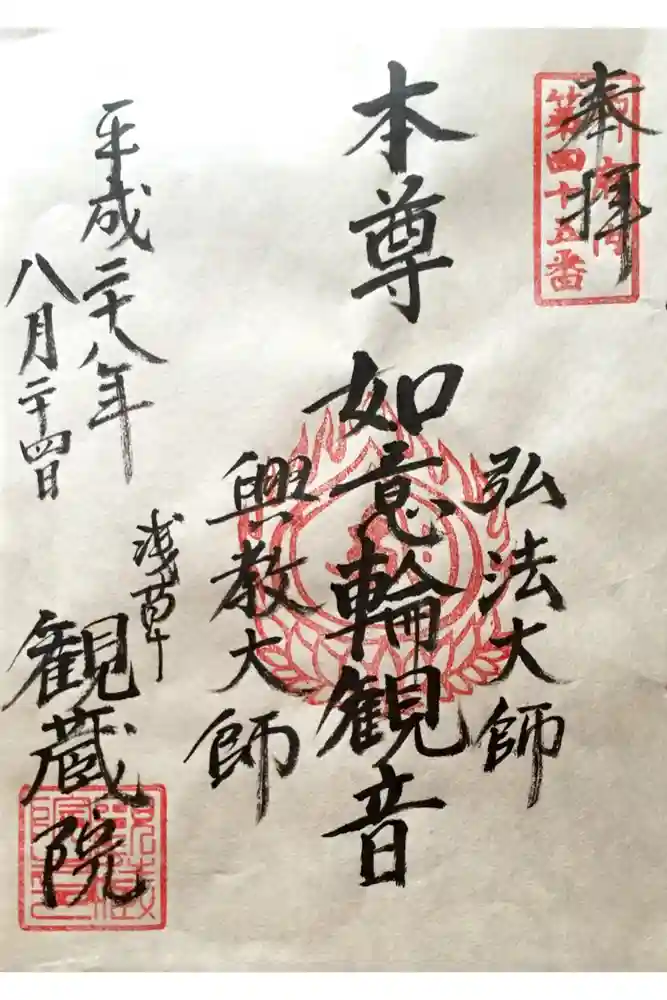 奉拝
第四十五番
本尊 如意輪観音
弘法大師
興教大師
平成二十八年
八月二十四日
浅草
観蔵院